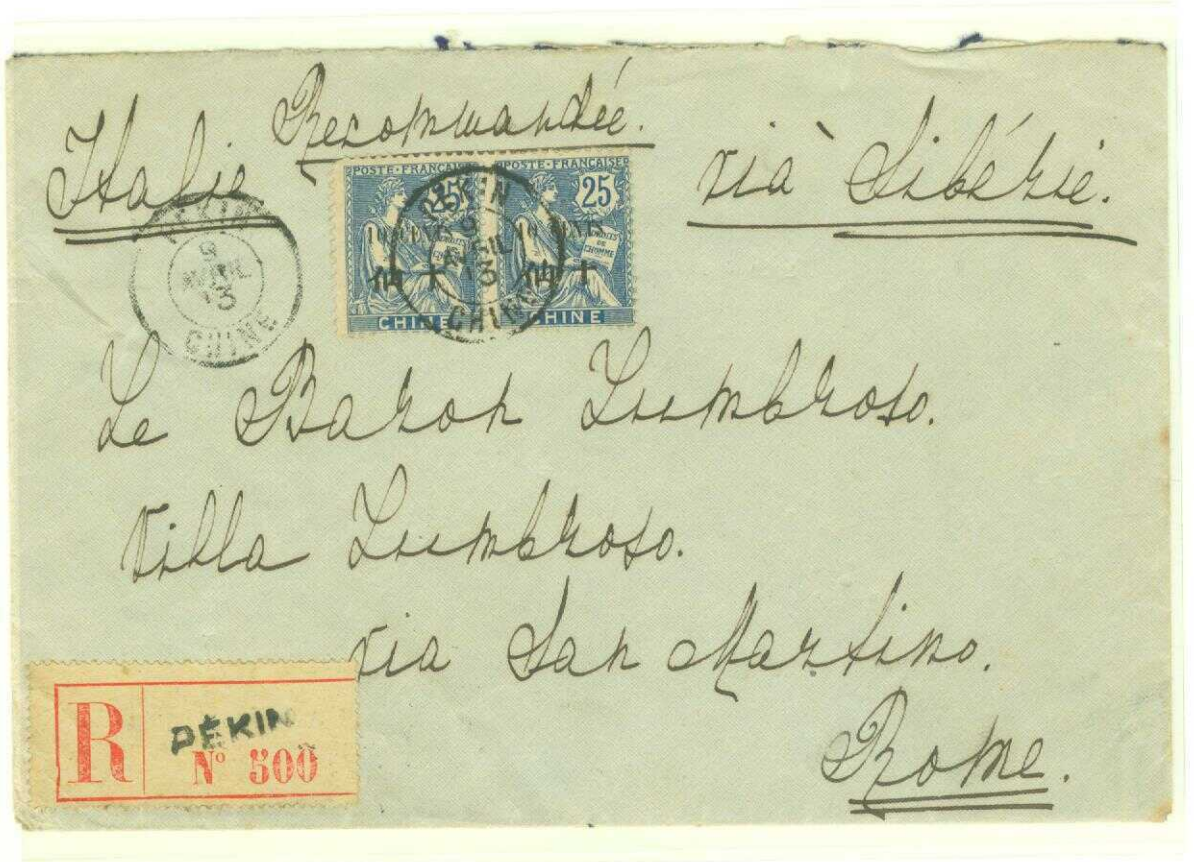 Italie
Recommandée.
vià Sibérie.
PEKIN
9
AVRIL
13
CHINE
POSTE·FRANÇAISE
25
仙十
CHINE
POSTE·FRANÇAISE
25
DROITS
DE
L'HOMME
仙十
CHINE
PEKIN
9
AVRIL
13
CHINE
Le Baron Lumbroso.
Villa Lumbroso.
via San Martino.
Rome.
R
PÉKIN
N° 500